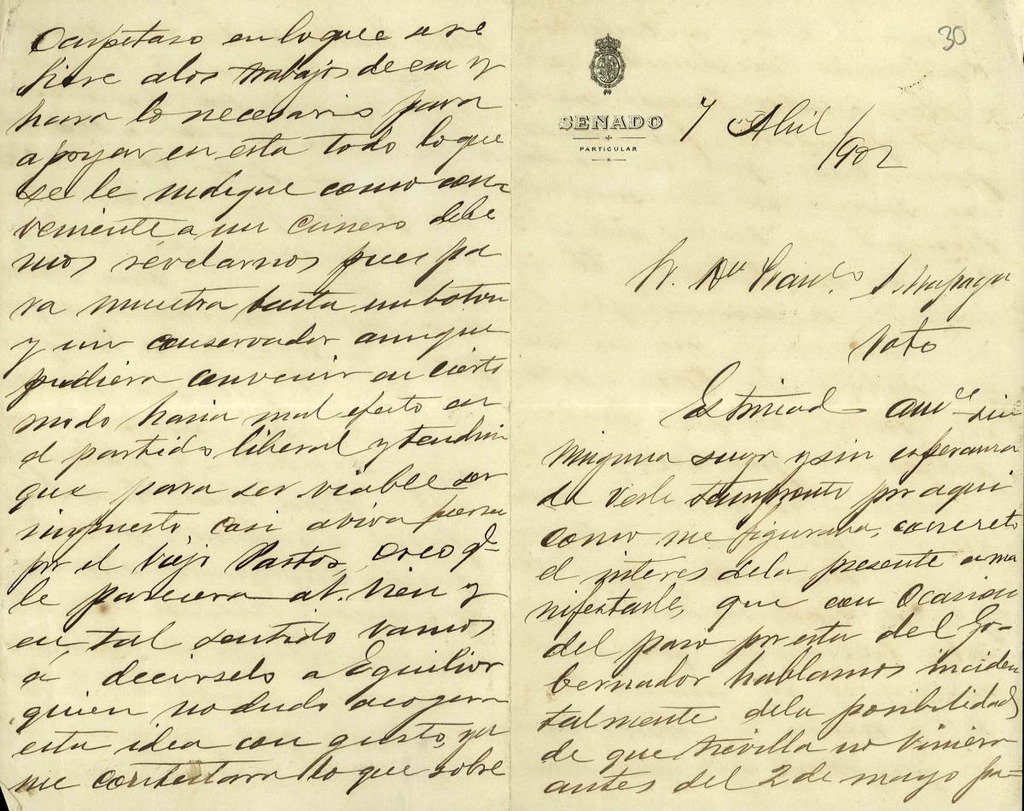 30
SENADO
PARTICULAR
7 Abril /902
Sr. Dn Franco
Estimado amo sin
ninguna suya y sin esperanza
de verle por aqui
como me figuraba, concreto
el interes dela presente a ma
nifestarle, que con Ocasion
del paso por esta del Go-
bernador hablamos inciden
talmente dela posibilidad
de que Sevilla no viniera
antes del 2 de mayo pa-
Carpetazo en loque a re
fiere alos trabajos de esa y
hara lo necesario para
apoyar en esta todo loque
se le indique como con-
veniente a un Cunero debe
mos revelarnos pues pa
ra muestra basta un boton
y un conservador aunque
pudiera convenir en cierto
modo haria mal efecto en
el partido liberal y tendria
que para ser viable ser
impuesto, casi a viva fuerza
por el viejo Pastos, creo q-
le parecera a V. bien y
en tal sentido vamos
á decirselo a Eguilior
quien no dudo acogera
esta idea con gusto, ya
me contestara lo que sobre